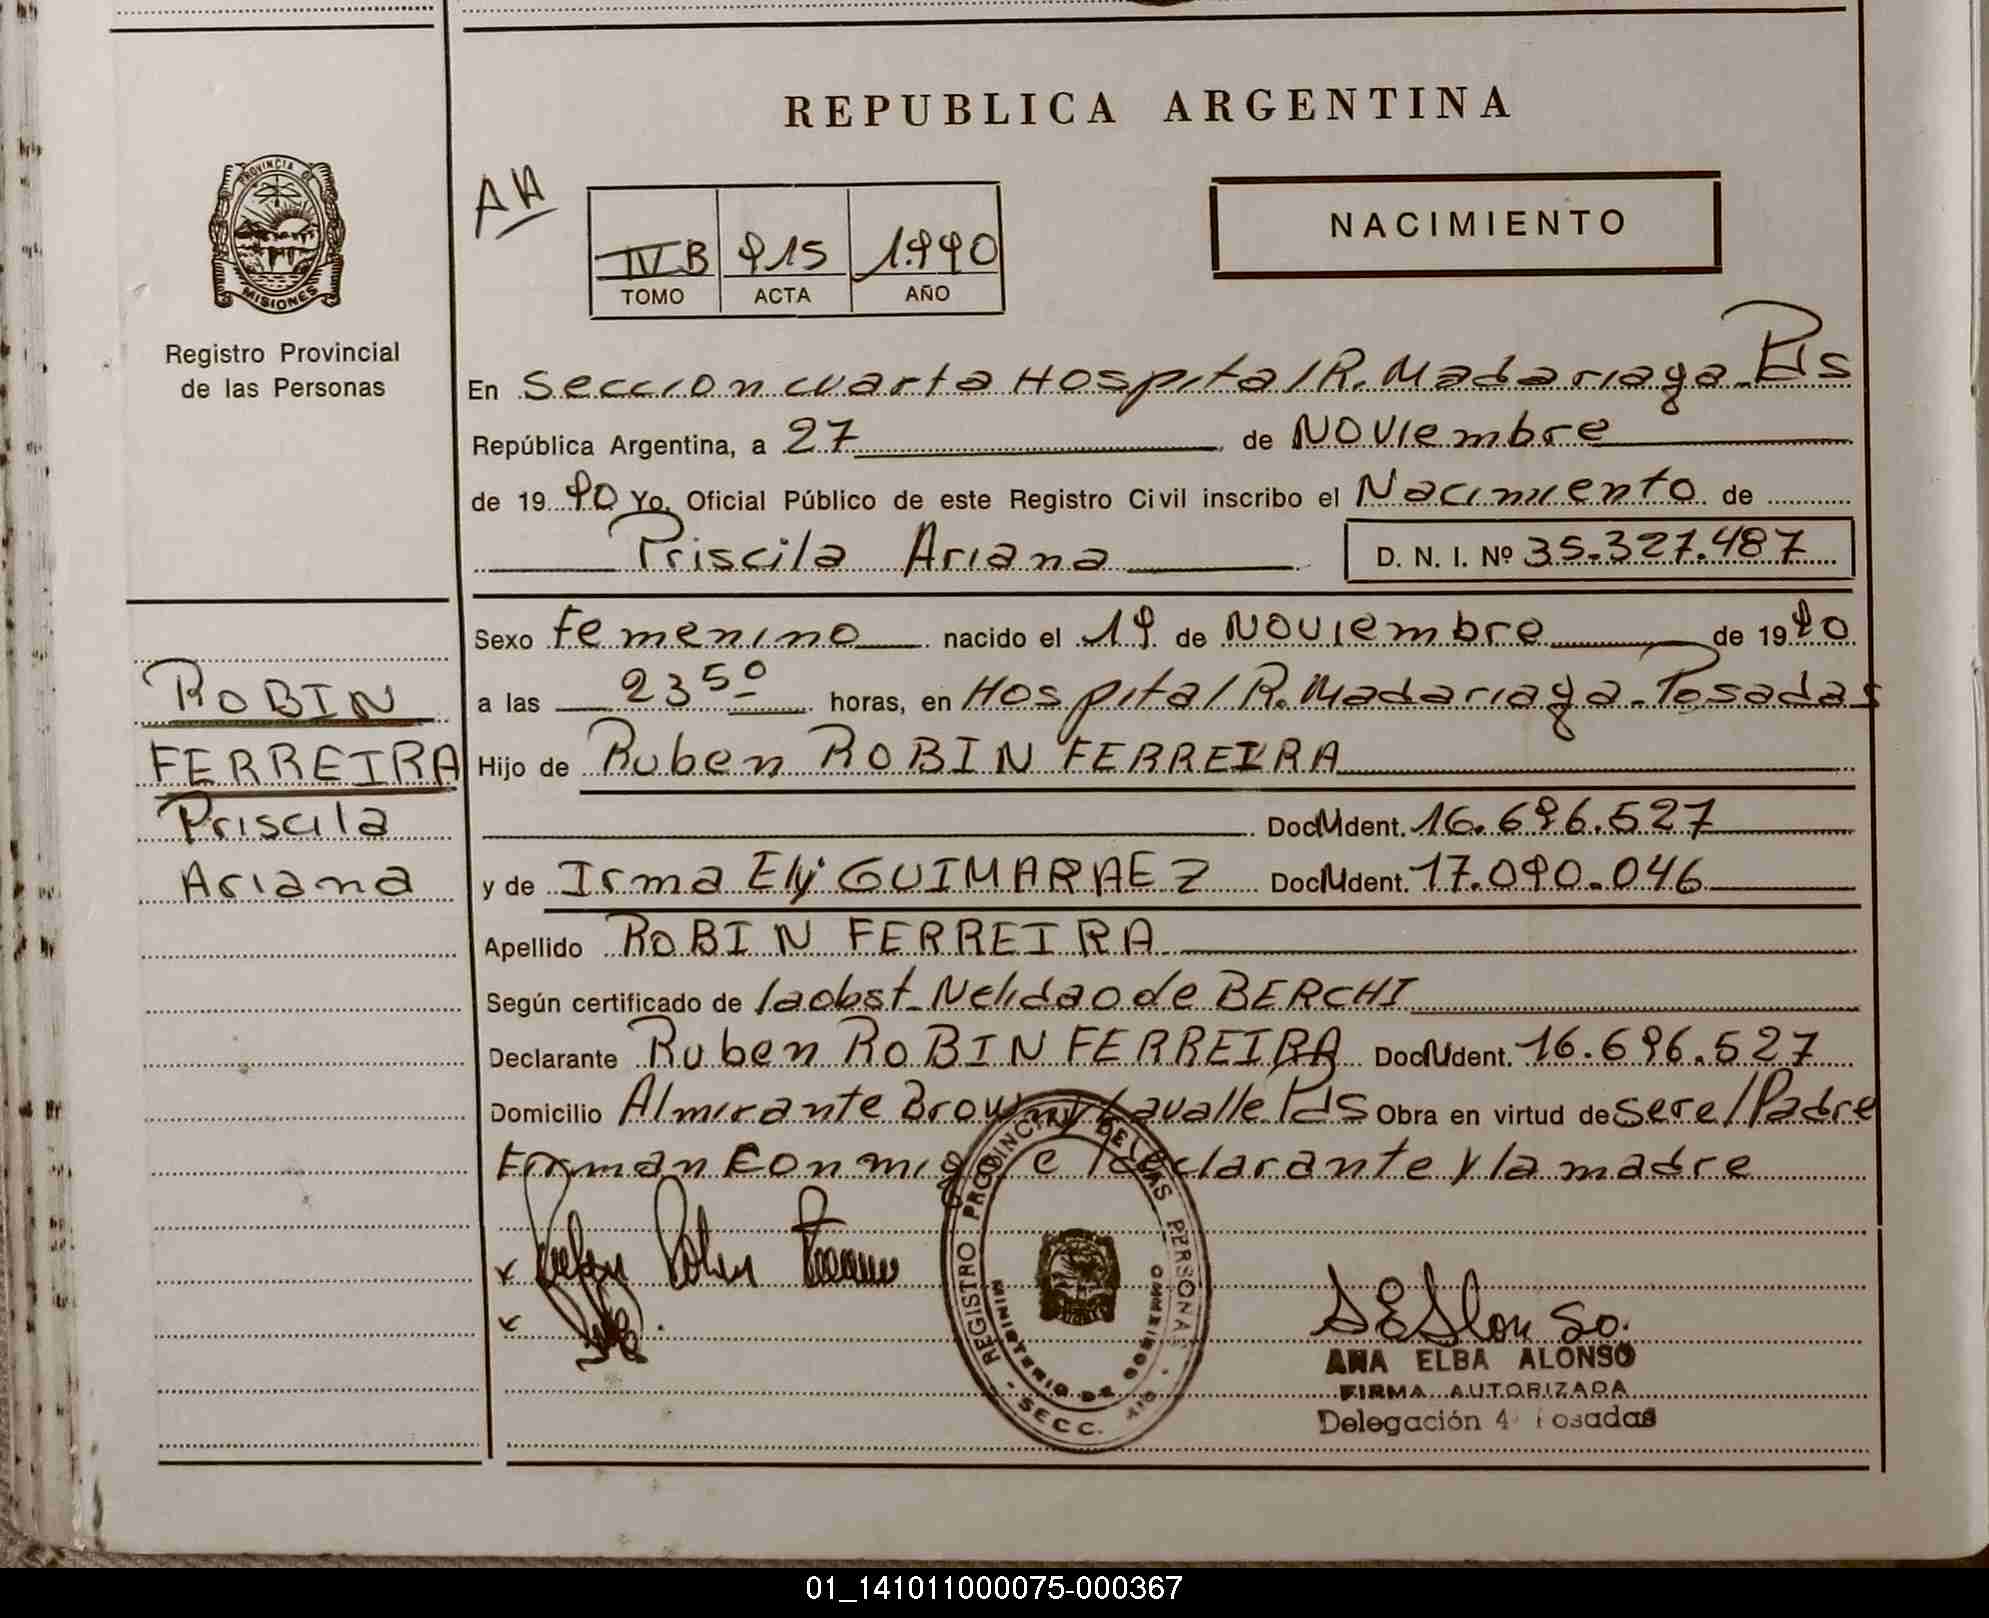 REPUBLICA ARGENTINA
PROVINCIA DE
MISIONES
Registro Provincial
de las Personas
AA
IV B 915 1990
TOMO ACTA AÑO
NACIMIENTO
En Seccion cuarta Hospital R. Madariaga-Pds
República Argentina, a 27 de Noviembre
de 19 90 Yo, Oficial Público de este Registro Civil inscribo el Nacimiento de
Priscila Ariana D. N. I. Nº 35.327.487
Sexo Femenino nacido el 19 de Noviembre de 19 90
a las 23 50 horas, en Hospital R. Madariaga-Posadas
Hijo de Ruben ROBIN FERREIRA
Doc. Ident. 16.696.527
y de Irma Ely GUIMARAEZ Doc. Ident. 17.090.046
Apellido ROBIN FERREIRA
Según certificado de la obst. Nelida O de BERCHI
Declarante Ruben ROBIN FERREIRA Doc. Ident. 16.696.527
Domicilio Almirante Brown y Lavalle Pds Obra en virtud de ser el Padre
Firman conmigo el declarante y la madre
ROBIN
FERREIRA
Priscila
Ariana
REGISTRO PROVINCIAL DE LAS PERSONAS
MINISTERIO DE GOBIERNO
SECC.
AEAlonso.
ANA ELBA ALONSO
FIRMA AUTORIZADA
Delegación 4 Posadas
01_141011000075-000367